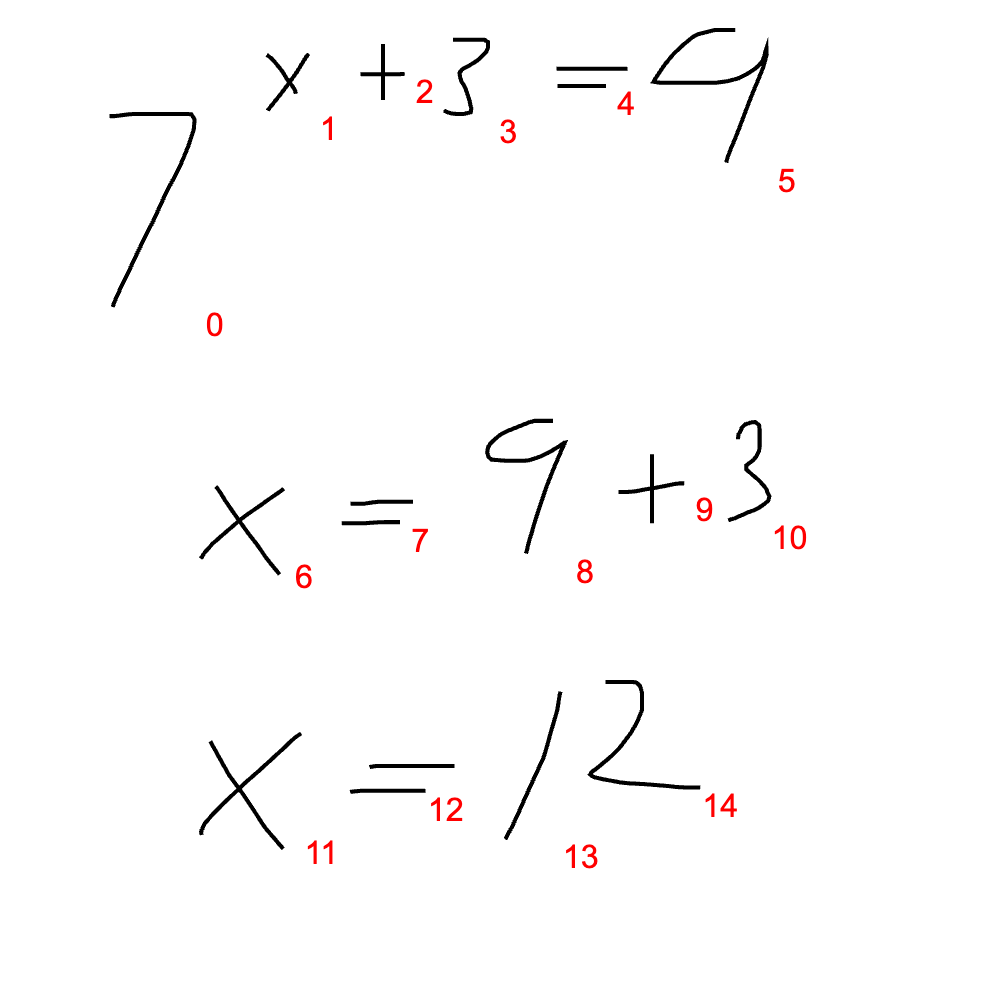 7 x + 3 = 9
0 1 2 3 4 5
x = 9 + 3
6 7 8 9 10
x = 12
11 12 13 14